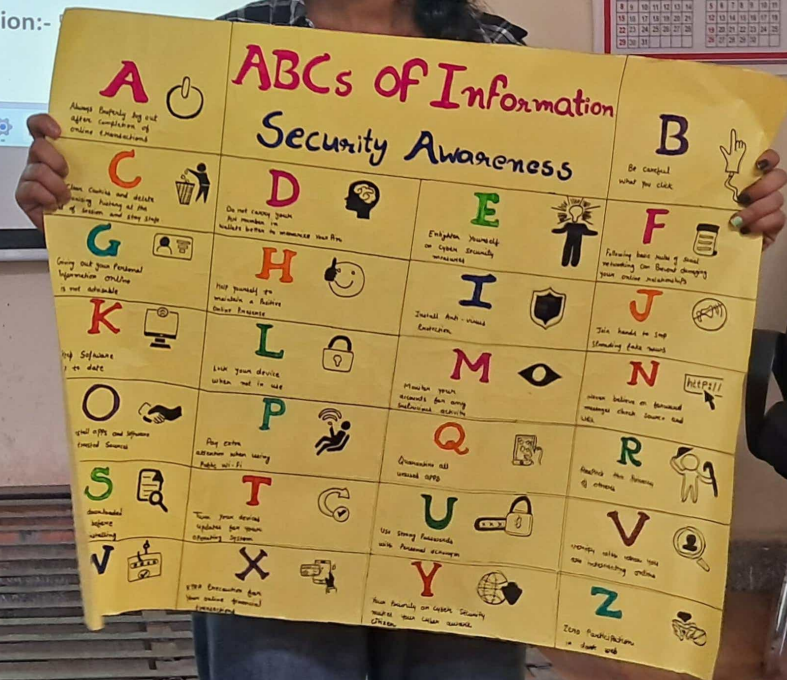 ion:-
ABCs OF Information
Security Awareness
A
Always Properly log out
after completion of
online transactions
B
Be careful
what you click
C
Clean Cache and delete
history at the
of session and stay safe
D
Do not carry your
Pin number in
wallets better to memorize your Pin
E
Enlighten Yourself
on Cyber Security
measures
F
Following basic rules of social
networking can Prevent damaging
your online relationships
G
Giving out your Personal
Information online
is not advisable
H
Help yourself to
maintain a Positive
Online Presence
I
Install Anti-virus
Protection
J
Join hands to stop
Spreading fake news
K
Software
to date
L
Lock your device
when not in use
M
Monitor your
accounts for any
activity
N
Never believe or forward
messages check source and
O
apps and Software
trusted Sources
P
Pay extra
attention when using
Public Wi-Fi
Q
Quarantine all
unused apps
R
Respect the Privacy
of others
S
downloaded
before
T
Turn your device
updates for your
operating System
U
Use strong Passwords
with Personal acronym
V
Verify who when you
are interacting online
W
X
Precaution for
your online financial
transactions
Y
Your Priority on Cyber Security
makes You Cyber aware
citizen
Z
Zero Participation
in dark web
http://